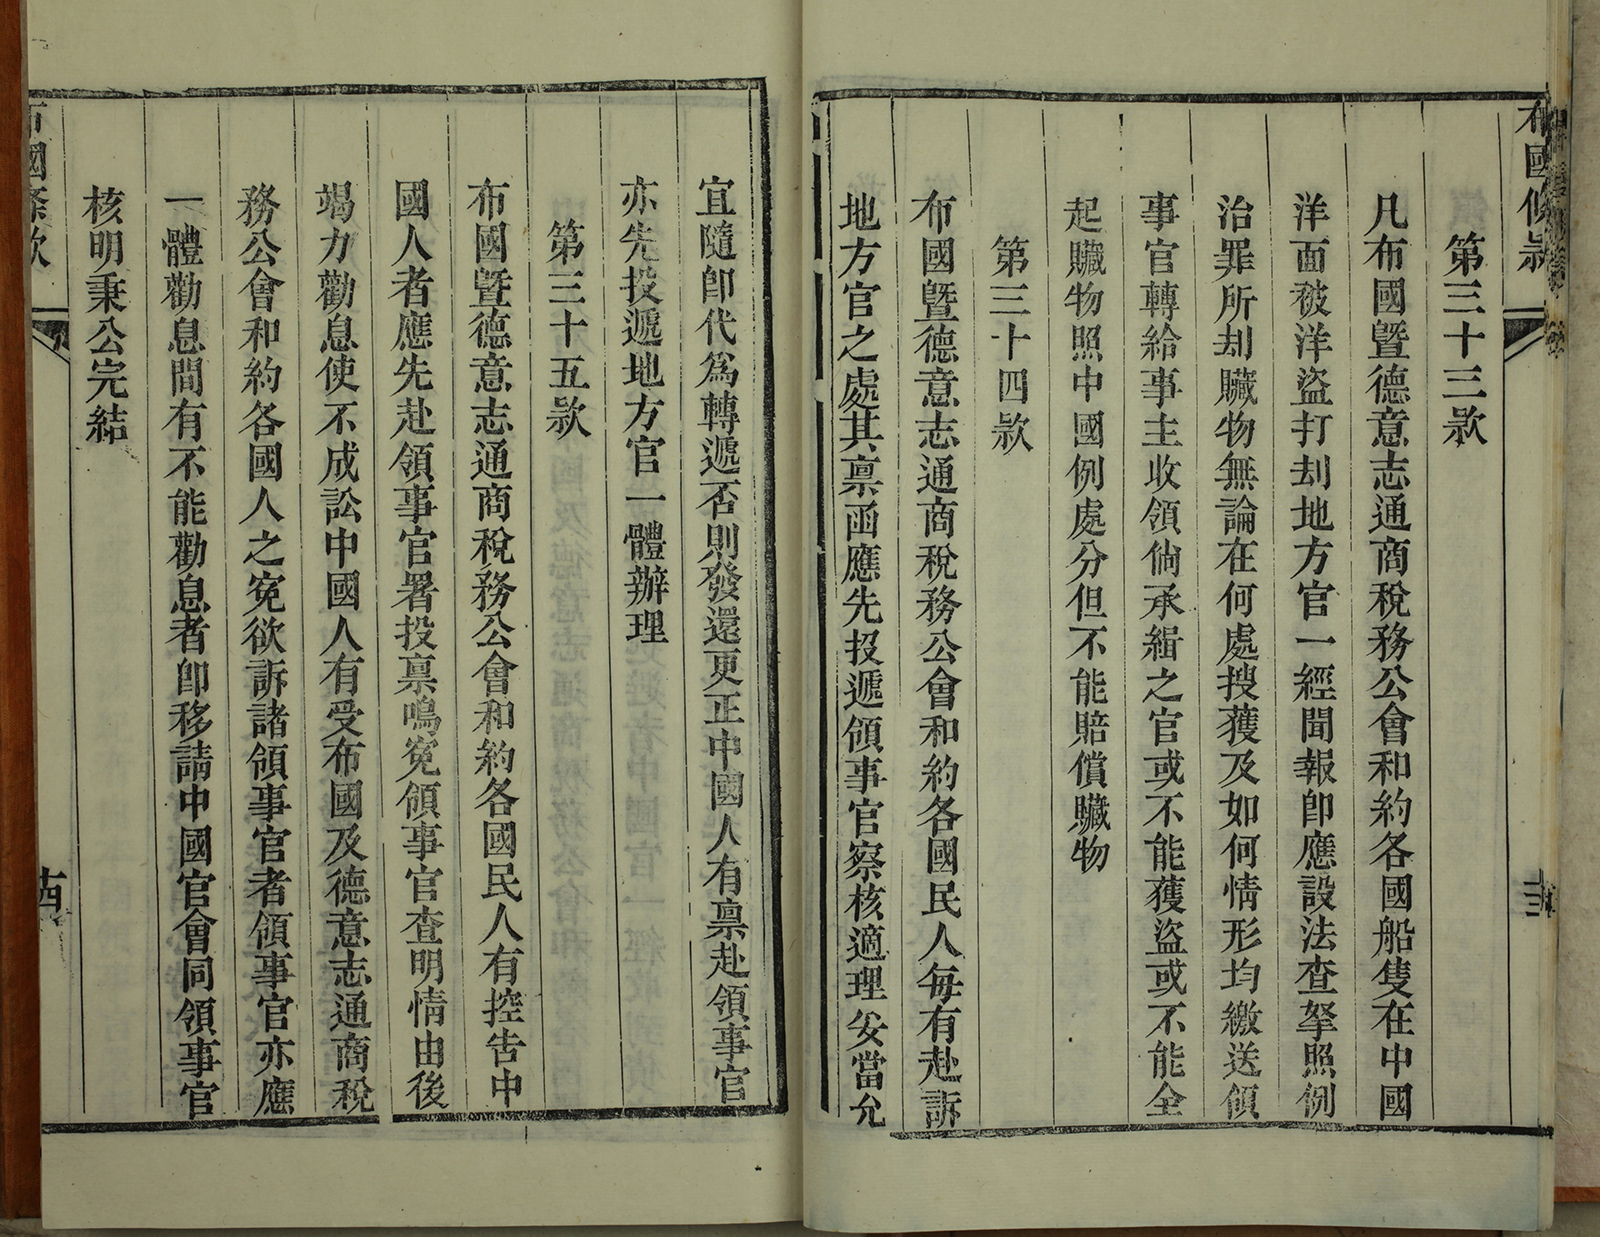 布國條款
第三十三款
凡布國暨德意志通商稅務公會和約各國船隻在中國
洋面被洋盜打刦地方官一經聞報卽應設法查拏照例
治罪所刦贜物無論在何處搜獲及如何情形均繳送領
事官轉給事主收領倘承緝之官或不能獲盜或不能全
起贜物照中國例處分但不能賠償贜物
第三十四款
布國暨德意志通商稅務公會和約各國民人每有赴訴
地方官之處其禀函應先投遞領事官察核適理妥當允
宜隨卽代爲轉遞否則發還更正中國人有禀赴領事官
亦先投遞地方官一體辦理
第三十五款
布國暨德意志通商稅務公會和約各國民人有控告中
國人者應先赴領事官署投禀鳴寃領事官查明情由後
竭力勸息使不成訟中國人有受布國及德意志通商稅
務公會和約各國人之寃欲訴諸領事官者領事官亦應
一體勸息間有不能勸息者卽移請中國官會同領事官
核明秉公完結
布國條款